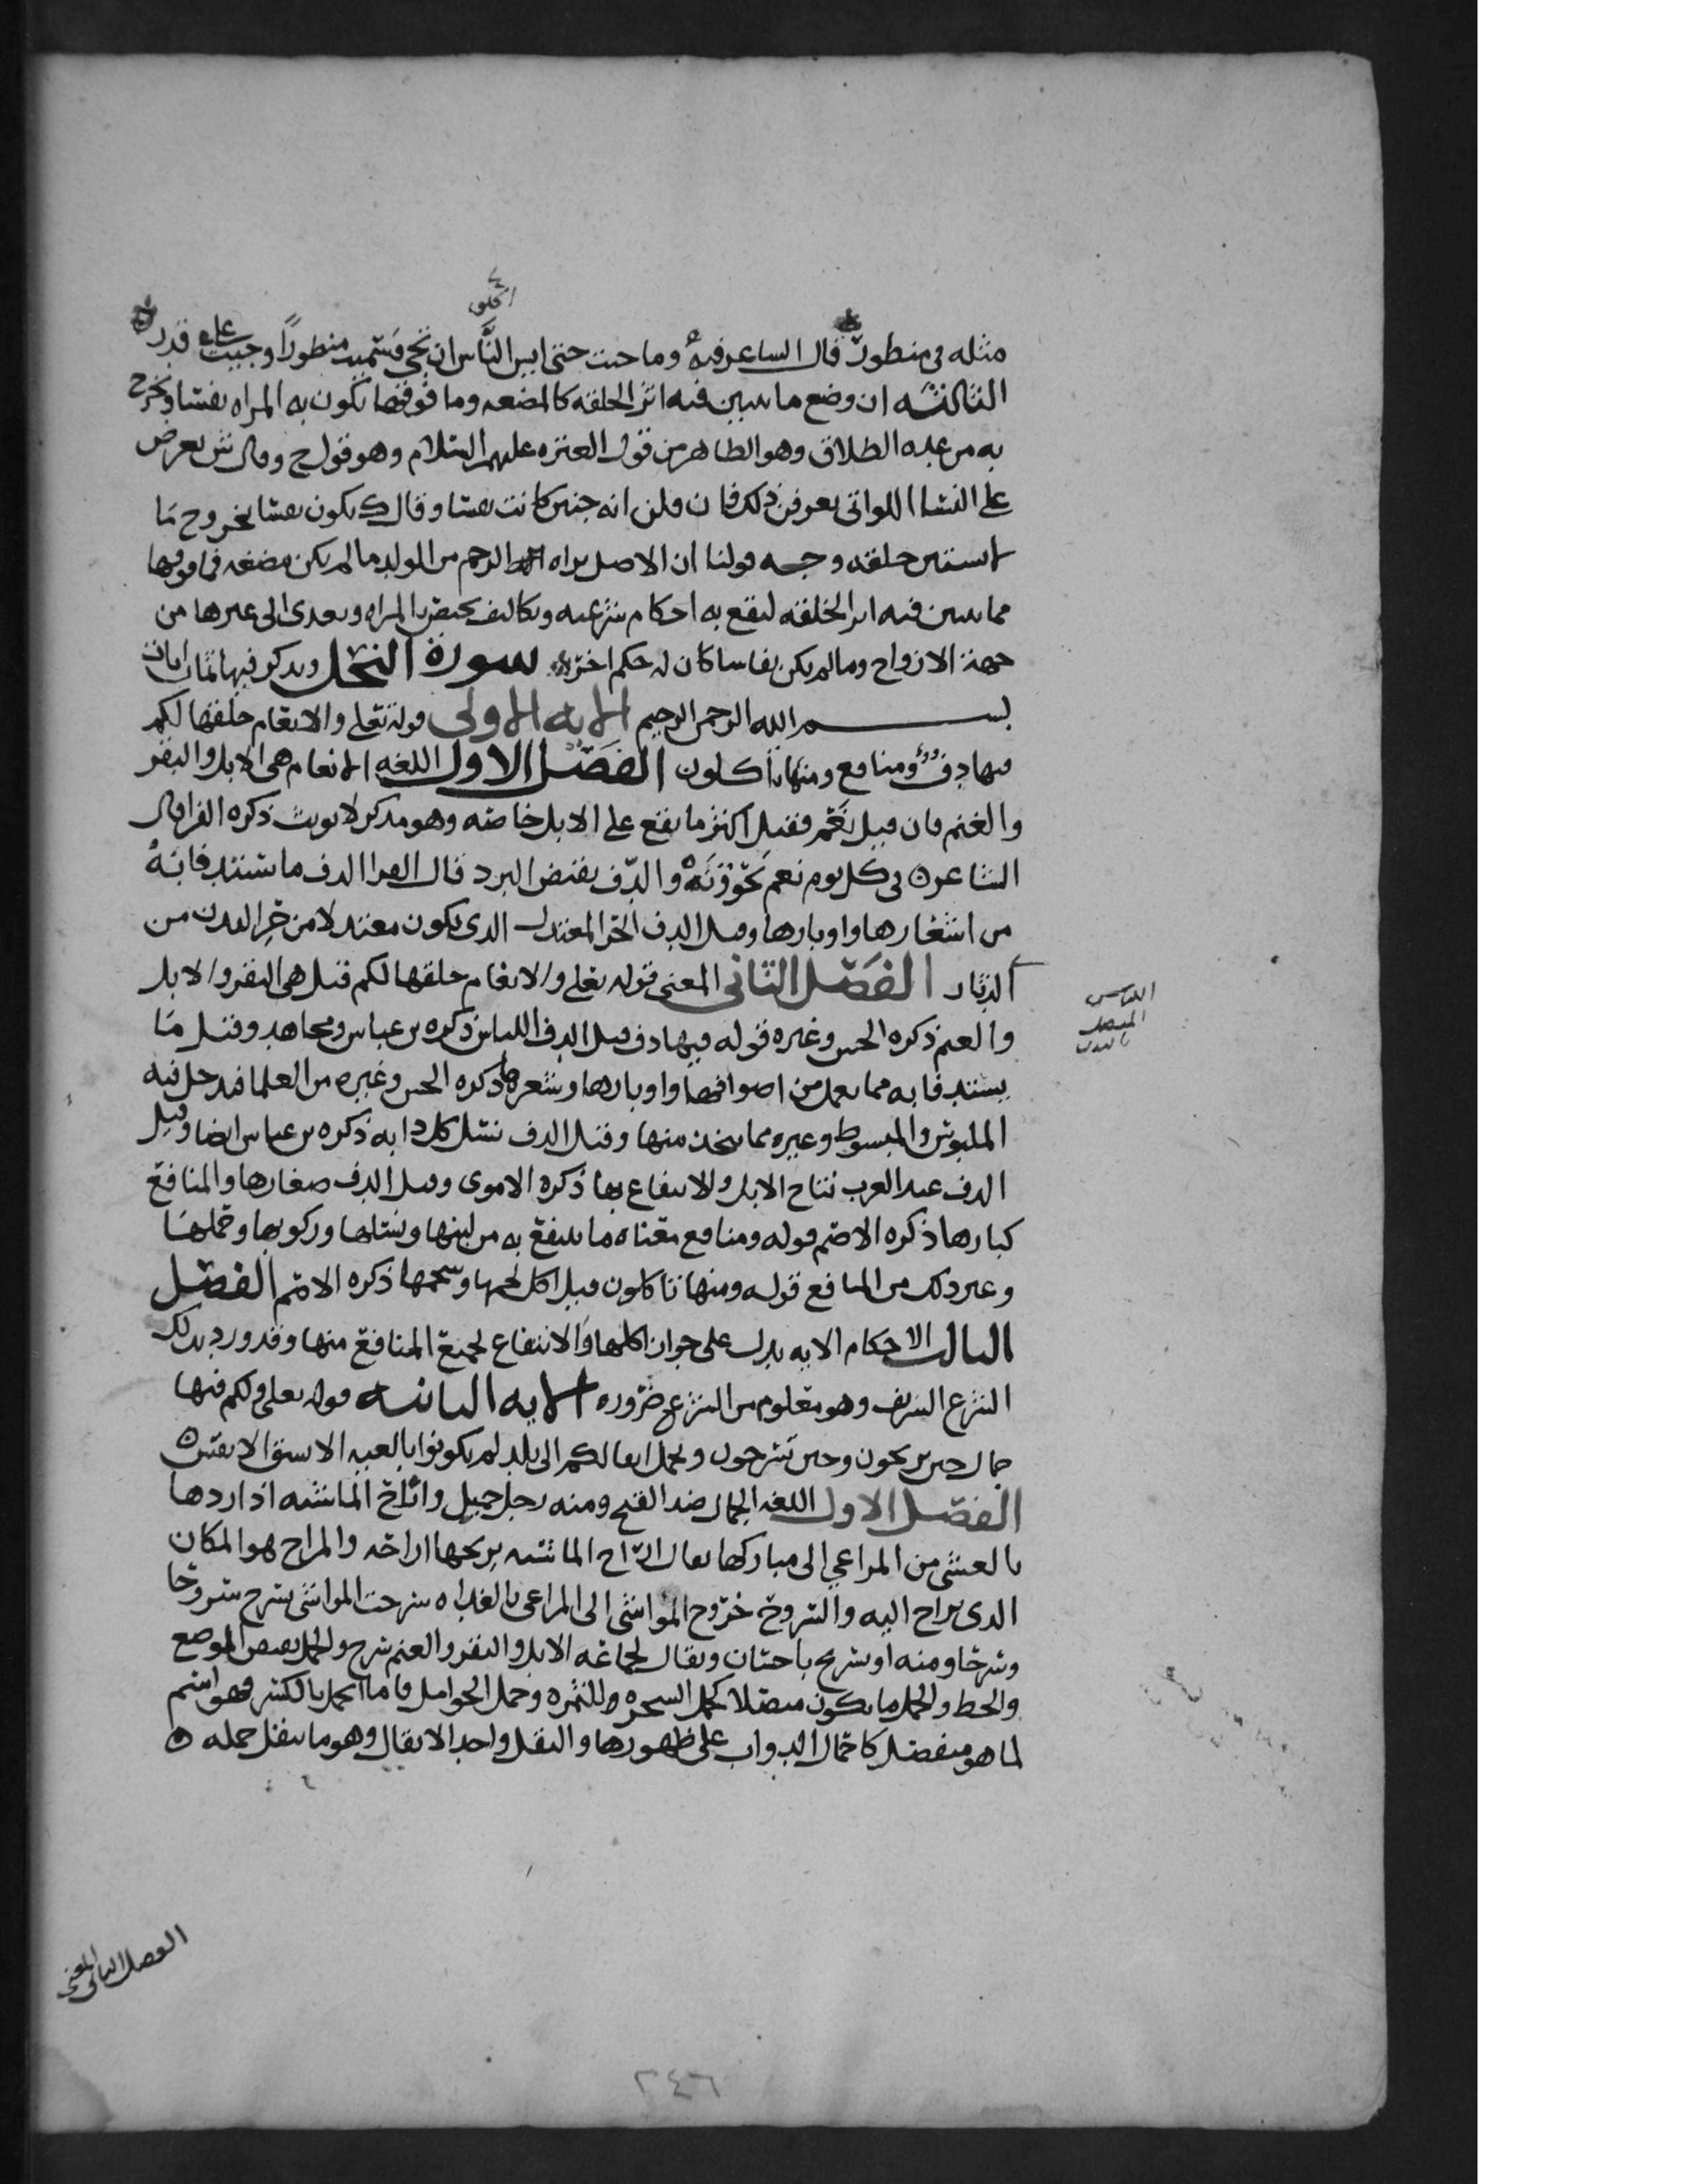 الخلق
مثله فى منطور قال الساعر فيه وما حيت حتى ايس الناس ان تحى فسميت منطورا وجيت على قدر
الثالثه ان وضع ما تبين فيه اثر الخلقه كالمضغه وما فوقها تكون به المراه نفسا وتخرج
به من عده الطلاق وهو الظاهر من قول العتره عليهم السلام وهو قول ح وقال ش يعرض
على النسا اللواتى يعرفن ذلك فان قلن انه جنين كانت نفسا وقال ك يكون نفسا بخروج ما
استبين خلقه وجه قولنا ان الاصل براه الرحم من الولد ما لم يكن مضغه فما فوقها
مما تبين فيه اثر الخلقه ليقع به احكام شرعيه وتكاليف يختص بالمراه وتعدى الى غيرها من
جهة الازواج وما لم يكن نفاسا كان له حكم اخر سورة النحل ويذكر فيها ثمان ايات
بسم الله الرحمن الرحيم الايه الاولى قوله تعلى والانعام خلقها لكم
فيها دفؤ ومنافع ومنها تاكلون الفصل الاول اللغه الانعام هى الابل والبقر
والغنم فان قيل نعم فقيل اكثر ما يقع على الابل خاصه وهو مذكر لا يونث ذكره الفرا قال
الشاعر فى كل يوم نعم تحوونه والدف نقيض البرد قال الفرا الدف ما تستدفا به
من اشعارها واوبارها وقيل الدف الحر المعتدل الذى يكون معتدلا من حر البدن من
الدثار الفصل الثانى المعنى قوله تعلى والانعام خلقها لكم قيل هى البقر والابل
والغنم ذكره الحسن وغيره قوله فيها دف قيل الدف اللباس ذكره بن عباس ومجاهد وقيل ما
يستدفا به مما يعمل من اصوافها واوبارها وشعرها ذكره الحسن وغيره من العلما فيدخل فيه
الملبوس والمبسوط وغيره مما يتخذ منها وقيل الدف نسل كل دابه ذكره بن عباس ايضا وقيل
الدف عند العرب نتاج الابل والانتفاع بها ذكره الاموى وقيل الدف صغارها والمنافع
كبارها ذكره الاصم قوله ومنافع معناه ما ينتفع به من لبنها ونسلها وركوبها وحملها
وغير ذلك من المنافع قوله ومنها تاكلون قيل اكل لحمها وشحمها ذكره الاصم الفصل
الثالث الاحكام الايه يدل على جواز اكلها والانتفاع بجميع المنافع منها وقد ورد بذلك
الشرع الشريف وهو معلوم من الشرع ضروره الايه الثانيه قوله تعلى ولكم فيها
جمال حين تريحون وحين تسرحون وتحمل اثقالكم الى بلد لم تكونوا بالغيه الا بشق الانفس
الفصل الاول اللغه الجمال ضد القبح ومنه رجل جميل واراح الماشيه اذا ردها
بالعشى من المراعي الى مباركها يقال اراح الماشيه يريحها اراحه والمراح هو المكان
الذى يراح اليه والسروح خروج المواشى الى المراعى بالغداه سرحت المواشى تسرح سروحا
وسرحا ومنه او تسريح باحسان ويقال لجماعه الابل والبقر والغنم سرح والحمل نقيض الوضع
والحط والحمل ما يكون متصلا كحمل الشجره للثمره وحمل الحوامل فاما الحمل بالكسر فهو اسم
لما هو منفصل كاحمال الدواب على ظهورها والثقل واحد الاثقال وهو ما يثقل حمله
الفصل الثانى المعنى
٢٤٦